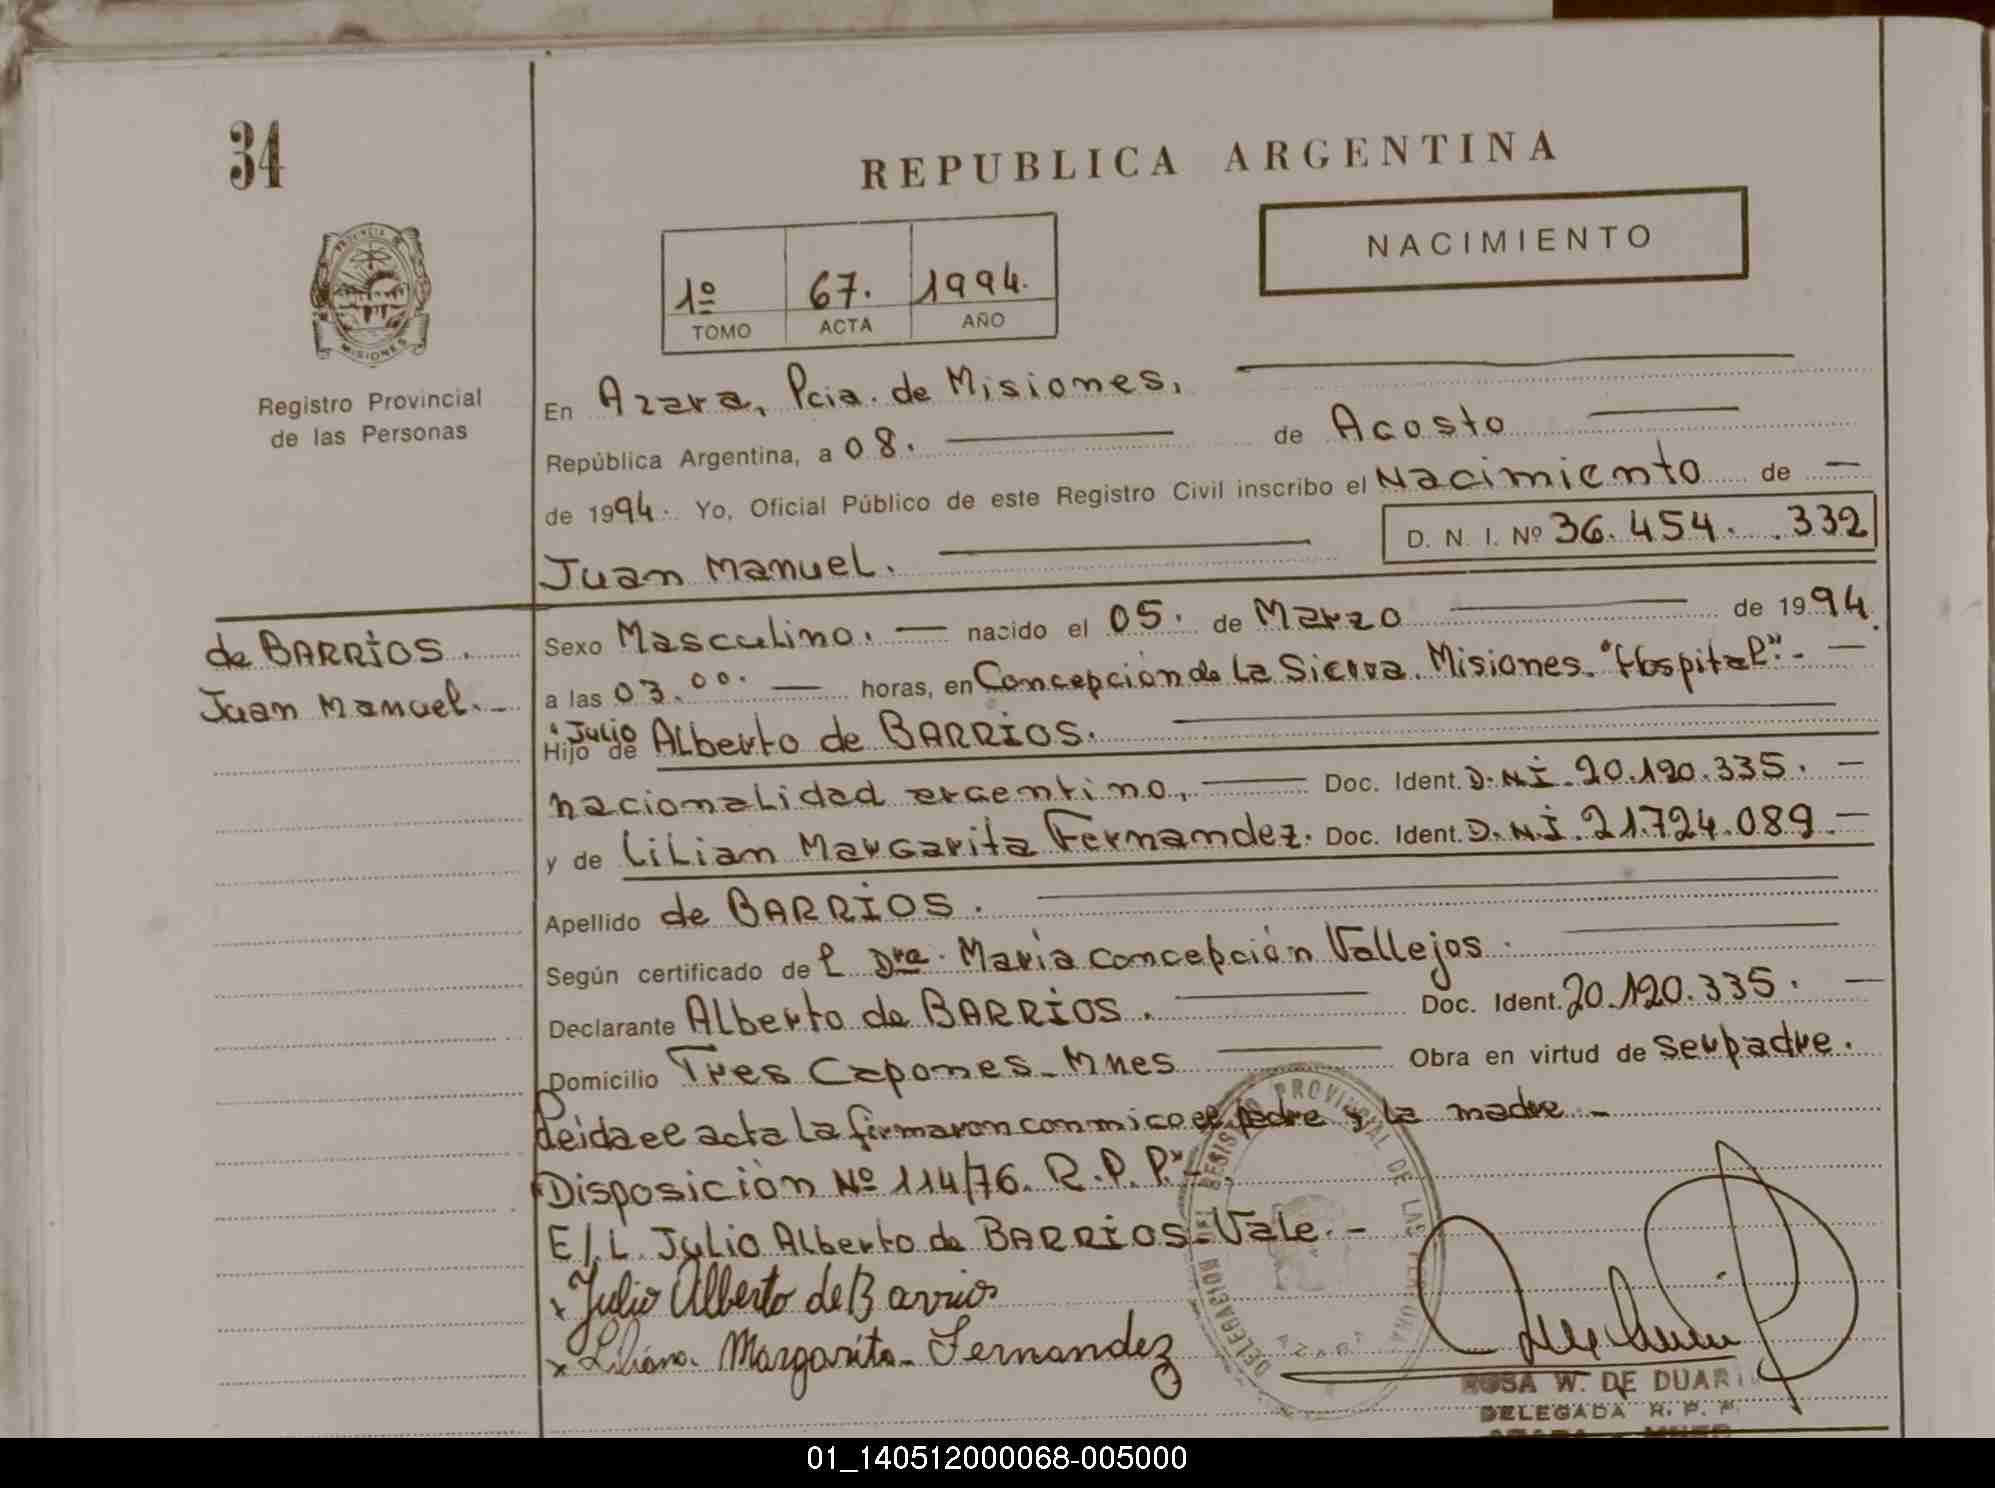 34
REPUBLICA ARGENTINA
NACIMIENTO
1º 67. 1994.
TOMO ACTA AÑO
PROVINCIA DE
MISIONES
Registro Provincial
de las Personas
En Azara, Pcia. de Misiones,
República Argentina, a 08. de Agosto
de 1994. Yo, Oficial Público de este Registro Civil inscribo el Nacimiento de
D. N. I. Nº 36.454. 332
Juan Manuel.
de BARRIOS.
Juan Manuel.-
Sexo Masculino. nacido el 05. de Marzo de 1994.
a las 03.00. horas, en Concepción de La Sierra. Misiones. "Hospital".-
"Julio
Hijo de Alberto de BARRIOS.
nacionalidad argentino, Doc. Ident. D.N.I. 20.120.335.
y de Lilian Margarita Fernandez. Doc. Ident. D.N.I. 21.724.089.
Apellido de BARRIOS.
Según certificado del Dra. María Concepción Vallejos.
Declarante Alberto de BARRIOS. Doc. Ident. 20.120.335.
Domicilio Tres Capones - Mnes Obra en virtud de ser padre.
Leida el acta la firmaron conmigo el padre y la madre.-
Disposición Nº 114/76. R.P.P."-
E/.L. Julio Alberto de BARRIOS-Vale.-
x Julio Alberto de Barrios
x Liliana. Margarita. Fernandez
DELEGACION DEL REGISTRO PROVINCIAL DE LAS PERSONAS
AZARA
ROSA W. DE DUARTE
DELEGADA R. P. P.
AZARA - MNES
01_140512000068-005000